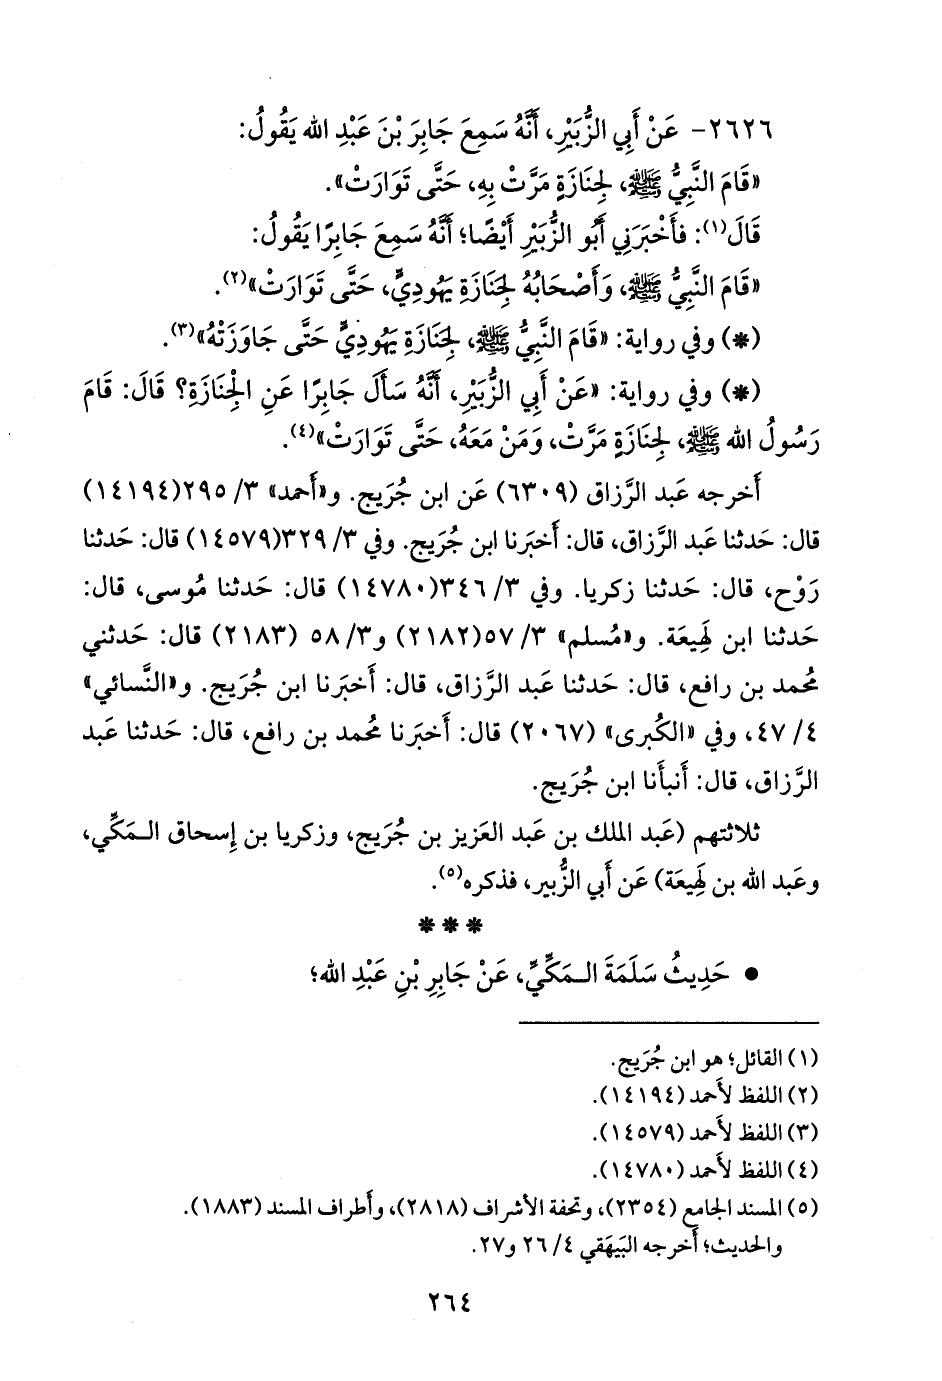 ٢٦٢٦- عَنْ أَبِي الزُّبَيْرِ، أَنَّهُ سَمِعَ جَابِرَ بْنَ عَبْدِ الله يَقُولُ:
«قَامَ النَّبِيُّ ﷺ، لِجِنَازَةٍ مَرَّتْ بِهِ، حَتَّى تَوَارَتْ».
قَالَ(١): فَأَخْبَرَنِي أَبُو الزُّبَيْرِ أَيْضًا؛ أَنَّهُ سَمِعَ جَابِرًا يَقُولُ:
«قَامَ النَّبِيُّ ﷺ، وَأَصْحَابُهُ لِجَنَازَةِ يَهُودِيٍّ، حَتَّى تَوَارَتْ»(٢).
(*) وفي رواية: «قَامَ النَّبِيُّ ﷺ، لِجَنَازَةِ يَهُودِيٍّ حَتَّى جَاوَزَتْهُ»(٣).
(*) وفي رواية: «عَنْ أَبِي الزُّبَيْرِ، أَنَّهُ سَأَلَ جَابِرًا عَنِ الْجَنَازَةِ؟ قَالَ: قَامَ
رَسُولُ الله ﷺ، لِجَنَازَةٍ مَرَّتْ، وَمَنْ مَعَهُ، حَتَّى تَوَارَتْ»(٤).
أَخرجه عَبد الرَّزاق (٦٣٠٩) عَن ابن جُرَيج. و«أَحمد» ٣/ ٢٩٥(١٤١٩٤)
قال: حَدثنا عَبد الرَّزاق، قال: أَخبَرنا ابن جُرَيج. وفي ٣/ ٣٢٩(١٤٥٧٩) قال: حَدثنا
رَوْح، قال: حَدثنا زكريا. وفي ٣/ ٣٤٦(١٤٧٨٠) قال: حَدثنا مُوسى، قال:
حَدثنا ابن لَهِيعَة. و«مُسلم» ٣/ ٥٧(٢١٨٢) و٣/ ٥٨ (٢١٨٣) قال: حَدثني
مُحمد بن رافع، قال: حَدثنا عَبد الرَّزاق، قال: أَخبَرنا ابن جُرَيج. و«النَّسائي»
٤/ ٤٧، وفي «الكُبرى» (٢٠٦٧) قال: أَخبَرنا مُحمد بن رافع، قال: حَدثنا عَبد
الرَّزاق، قال: أَنبأَنا ابن جُرَيج.
ثلاثتهم (عَبد الملك بن عَبد العَزيز بن جُرَيج، وزكريا بن إِسحاق الـمَكِّي،
وعَبد الله بن لَهِيعَة) عَن أَبي الزُّبير، فذكره(٥).
***
• حَدِيثُ سَلَمَةَ الـمَكِّيِّ، عَنْ جَابِرِ بْنِ عَبْدِ الله؛
(١) القائل؛ هو ابن جُرَيج.
(٢) اللفظ لأَحمد (١٤١٩٤).
(٣) اللفظ لأَحمد (١٤٥٧٩).
(٤) اللفظ لأَحمد (١٤٧٨٠).
(٥) المسند الجامع (٢٣٥٤)، وتحفة الأشراف (٢٨١٨)، وأَطراف المسند (١٨٨٣).
والحديث؛ أَخرجه البَيهَقي ٤/ ٢٦ و٢٧.
٢٦٤